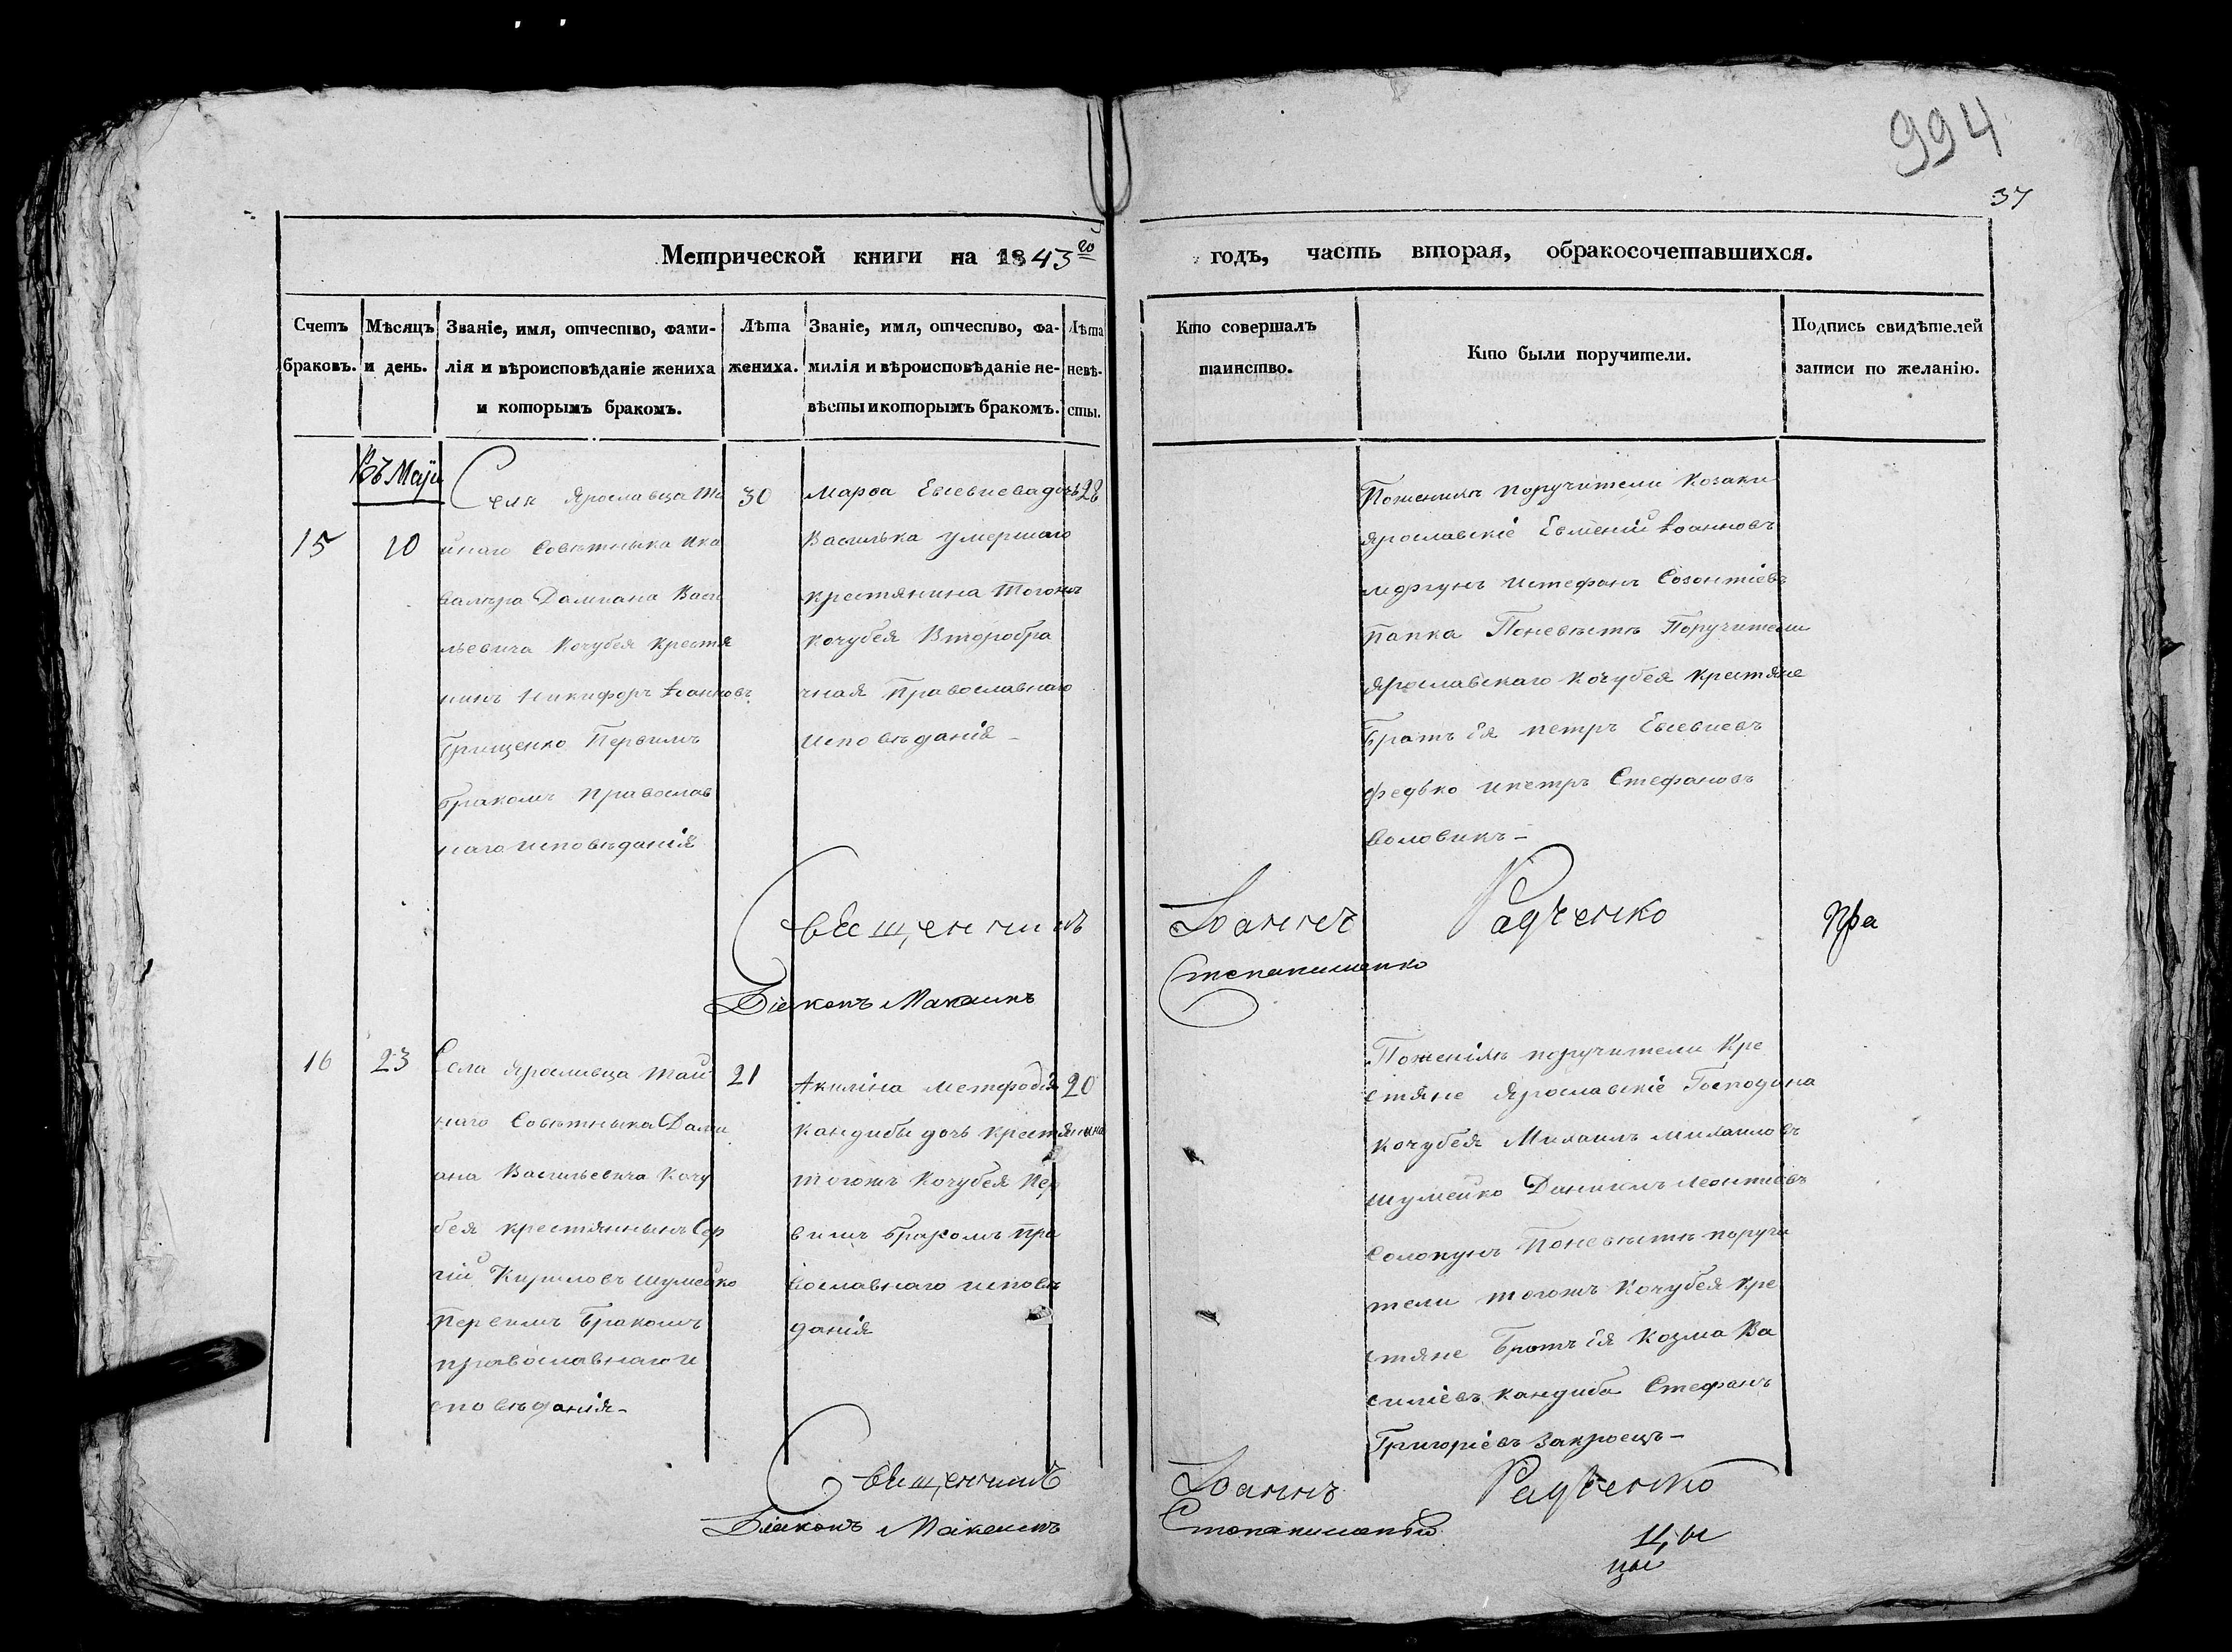 994
37
Метрической книги на 1843го
годъ, часть вторая, обракосочетавшихся.
Счетъ браковъ.
Мѣсяцъ и день.
Званіе, имя, отчество, фами-
лія и вѣроисповѣданіе жениха
и которымъ бракомъ.
Лѣта
жениха.
Званіе, имя, отчество, фа-
милія и вѣроисповѣданіе не-
вѣсты и которымъ бракомъ.
Лѣта
невѣ-
сты.
Кто совершалъ
таинство.
Кто были поручители.
Подпись свидѣтелей
записи по желанію.
Въ Маји
15
10
Села Ярославца Та
йнаго Совѣтныка ика
валѣра Дамиана Васи
льевича Кочубея Крестя
нинъ Никифоръ Іоанновъ
Грищенко Первимъ
бракомъ православ
наго исповѣданія
30
Марѳа Евсевиева дочь
Василька умершаго
крестянина тогожъ
Кочубея Второбра
чная Православнаго
исповѣданія –
28
Поженихѣ поручители козаки
Ярославскіе Евмений Іоанновъ
истефанъ Созонтіевъ
папка Поневѣстѣ Поручители
Ярославскаго Кочубея крестяне
Братъ ія петръ Евсевиевъ
федько ипетръ Стефановъ
Воловикъ –
Священникъ
Іоаннъ
Радченко
Діаконъ Максимъ
Пра
16
23
Села Ярославца Тай
наго Совѣтныка Дами
ана Васильевича Кочу
бея крестянинъ Сер
гій Кириловъ шумейко
Первимъ Бракомъ
православнаго и
сповѣданія –
21
Акилина Метфодія
кандибы дочь крестянина
тогожъ Кочубея Пер
вимъ бракомъ пра
вославнаго исповѣ
данія
20
Поженіхѣ поручители Кре
стяне Ярославскіе Господина
Кочубея Михаилъ михаиловъ
шумейко Даниилъ леонтіевъ
Солопунъ Поневѣстѣ поручи
тели тогожъ Кочубея Кре
стяне Братъ ія Козма Ва
силіевъ кандиба Стефанъ
Григоріевъ Закроецъ –
Священникъ
Іоаннъ
Радченко
Діаконъ Максимъ